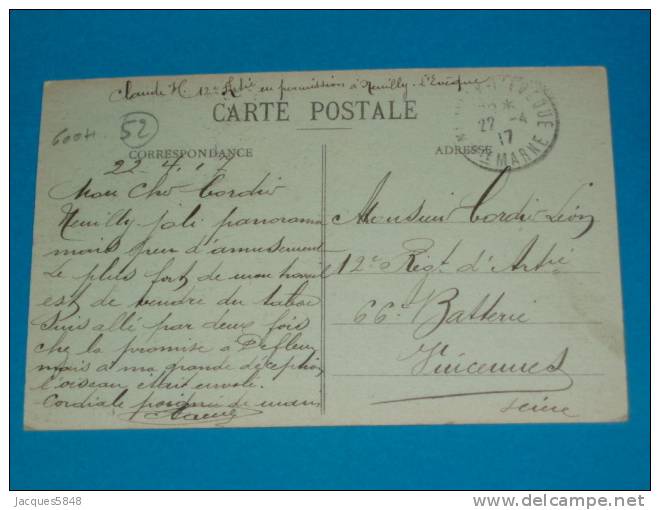 Claude H. 12e Artie en permission à Neuilly-l'Evêque
CARTE POSTALE
52
CORRESPONDANCE
ADRESSE
22 -4
17
MARNE
22.4.17
Mon Cher Cordié
Neuilly joli panorama
mais peu d'amusement
Le plus fort de mon travail
est de vendre du tabac
Suis allé par deux fois
che la promise à
mais a ma grande déception
l'oiseau était envolé.
Cordiale poignée de main
Monsieur Cordié Léon
12e Régt d'Artie
66e Batterie
Vincennes
Seine
Jacques5848
delcampe.net